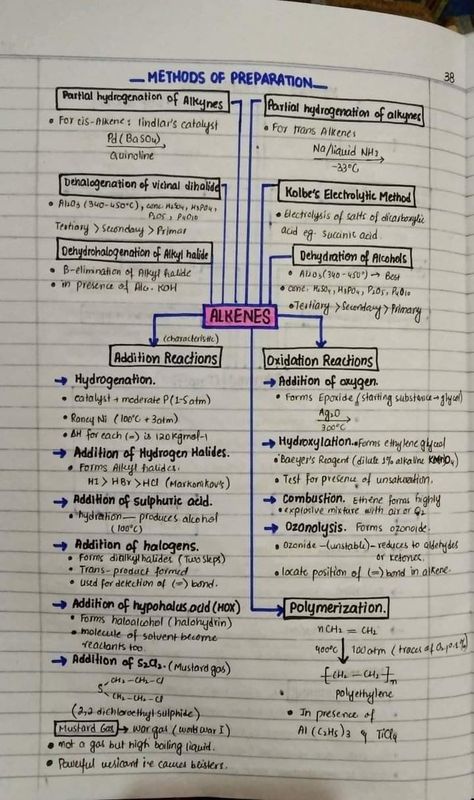 METHODS OF PREPARATION
38
Partial hydrogenation of Alkynes
• For cis-Alkenes lindlar's catalyst
Pd(BaSO4)
Quinoline
Dehalogenation of vicinal dihalide
• Al2O3 (340-450°C), conc. H2SO4, H3PO4,
P2O5, P4O10
Tertiary > Secondary > Primar
Dehydrohalogenation of Alkyl halide
• B-elimination of Alkyl halide
• in presence of Alc. KOH
Partial hydrogenation of alkynes
• For trans Alkenes
Na/liquid NH3
-33°C
Kolbe's Electrolytic Method
• Electrolysis of salts of dicarboxylic
acid eg. succinic acid.
Dehydration of Alcohols
• Al2O3 (340-450°) → Best
• conc. H2SO4, H3PO4, P2O5, P4O10
• Tertiary > Secondary > Primary
ALKENES
(characteristic)
Addition Reactions
→ Hydrogenation.
• catalyst + moderate P (1-5atm)
• Raney Ni (100°C + 3atm)
• ΔH for each (=) is 120 Kgmol-1
→ Addition of Hydrogen Halides.
• Forms Alkyl halides.
HI > HBr > HCl (Markonikov's)
→ Addition of sulphuric acid.
• hydration— produces alcohol
(100°C)
→ Addition of halogens.
• Forms dialkylhalides (Two steps)
• Trans-product formed
• Used for detection of (=) bond.
→ Addition of hypohalus acid (HOX)
• Forms haloalcohol (halohydrin)
• molecule of solvent become
reactants too.
→ Addition of S2Cl2. (Mustard gas)
CH2-CH2-Cl
S
CH2-CH2-Cl
(2,2 dichloroethyl sulphide)
Mustard Gas → War gas (world war I)
• not a gas but high boiling liquid.
• Powerful vesicant i.e causes blisters.
Oxidation Reactions
→ Addition of oxygen.
• Forms Epoxide (starting substance → glycol)
Ag2O
300°C
→ Hydroxylation. • Forms ethylene glycol
• Baeyer's Reagent (dilute 1% alkaline KMnO4)
• Test for presence of unsaturation.
→ Combustion. Ethene forms highly
• explosive mixture with air or O2
→ Ozonolysis. Forms ozonide.
• Ozonide — (unstable) - reduces to aldehydes
or Ketones
• locate position of (=) bond in alkene.
Polymerization.
nCH2 = CH2
400°C 100atm (traces of O2
[CH2 - CH2]n
polyethylene
• In presence of
Al(C2H5)3 & TiCl4